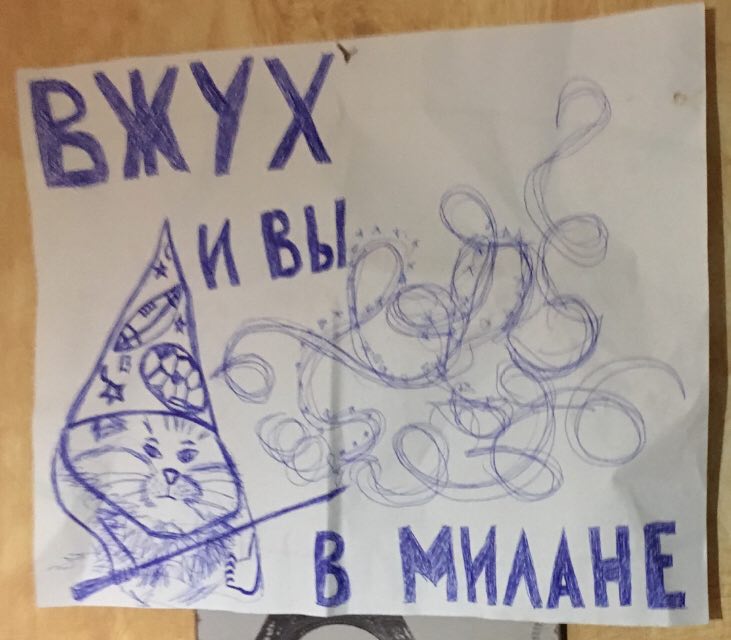 ВЖУХ
И ВЫ
В МИЛАНЕ